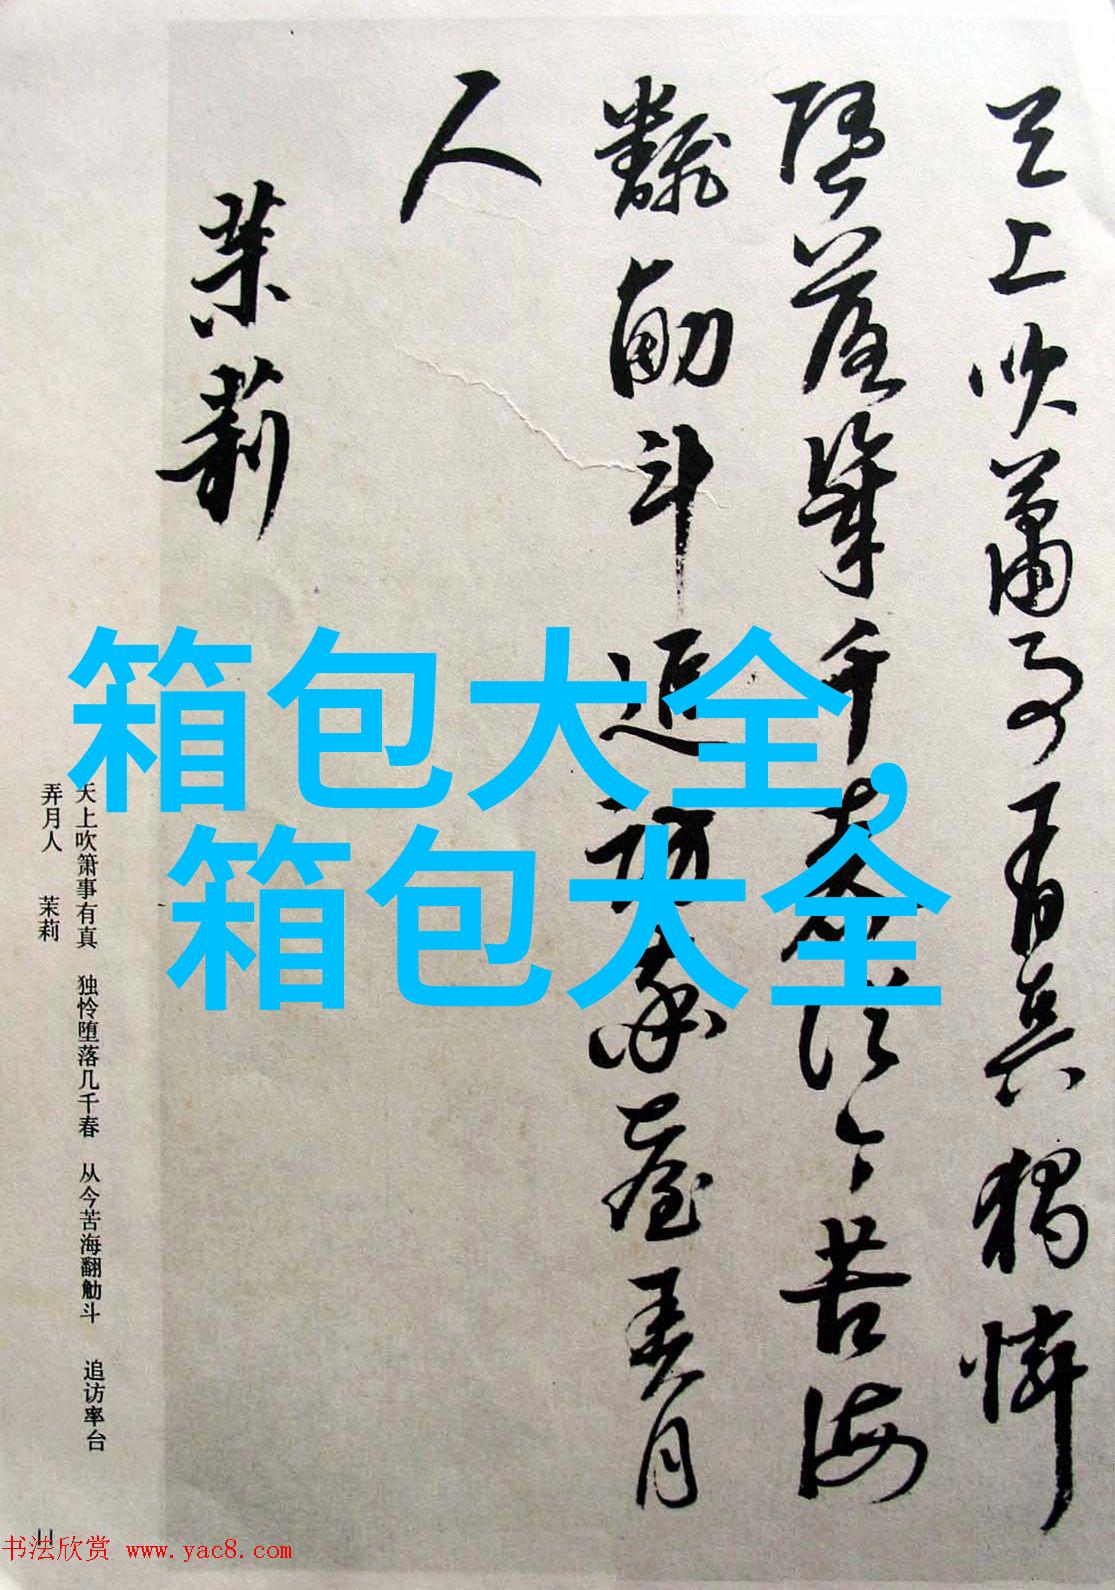 天上吹簫事有真獨憐
墮落幾千春從今苦海
飜觔斗追訪率臺弄月
人
茉莉
箱包大全,
箱包大全
天上吹箫事有真 独怜堕落几千春 从今苦海翻觔斗 追访率台
弄月人 茉莉
11
书法欣赏 www.yac8.com